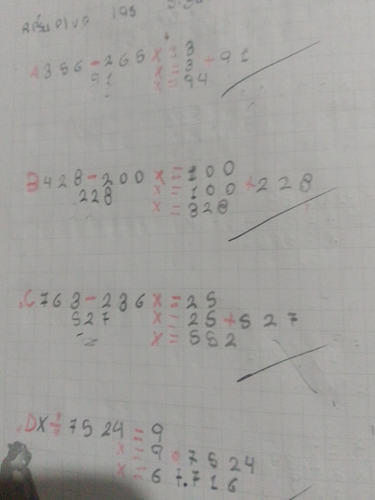 RESOLVA
A 356 - 265 X = 3
91 X = 3 + 91
X = 94
B 428 - 200 X = 100
228 X = 100 + 228
X = 328
.C 763 - 236 X = 25
527 X = 25 + 527
X = 552
.D X ÷ 7524 = 9
X = 9 • 7524
X = 67.716